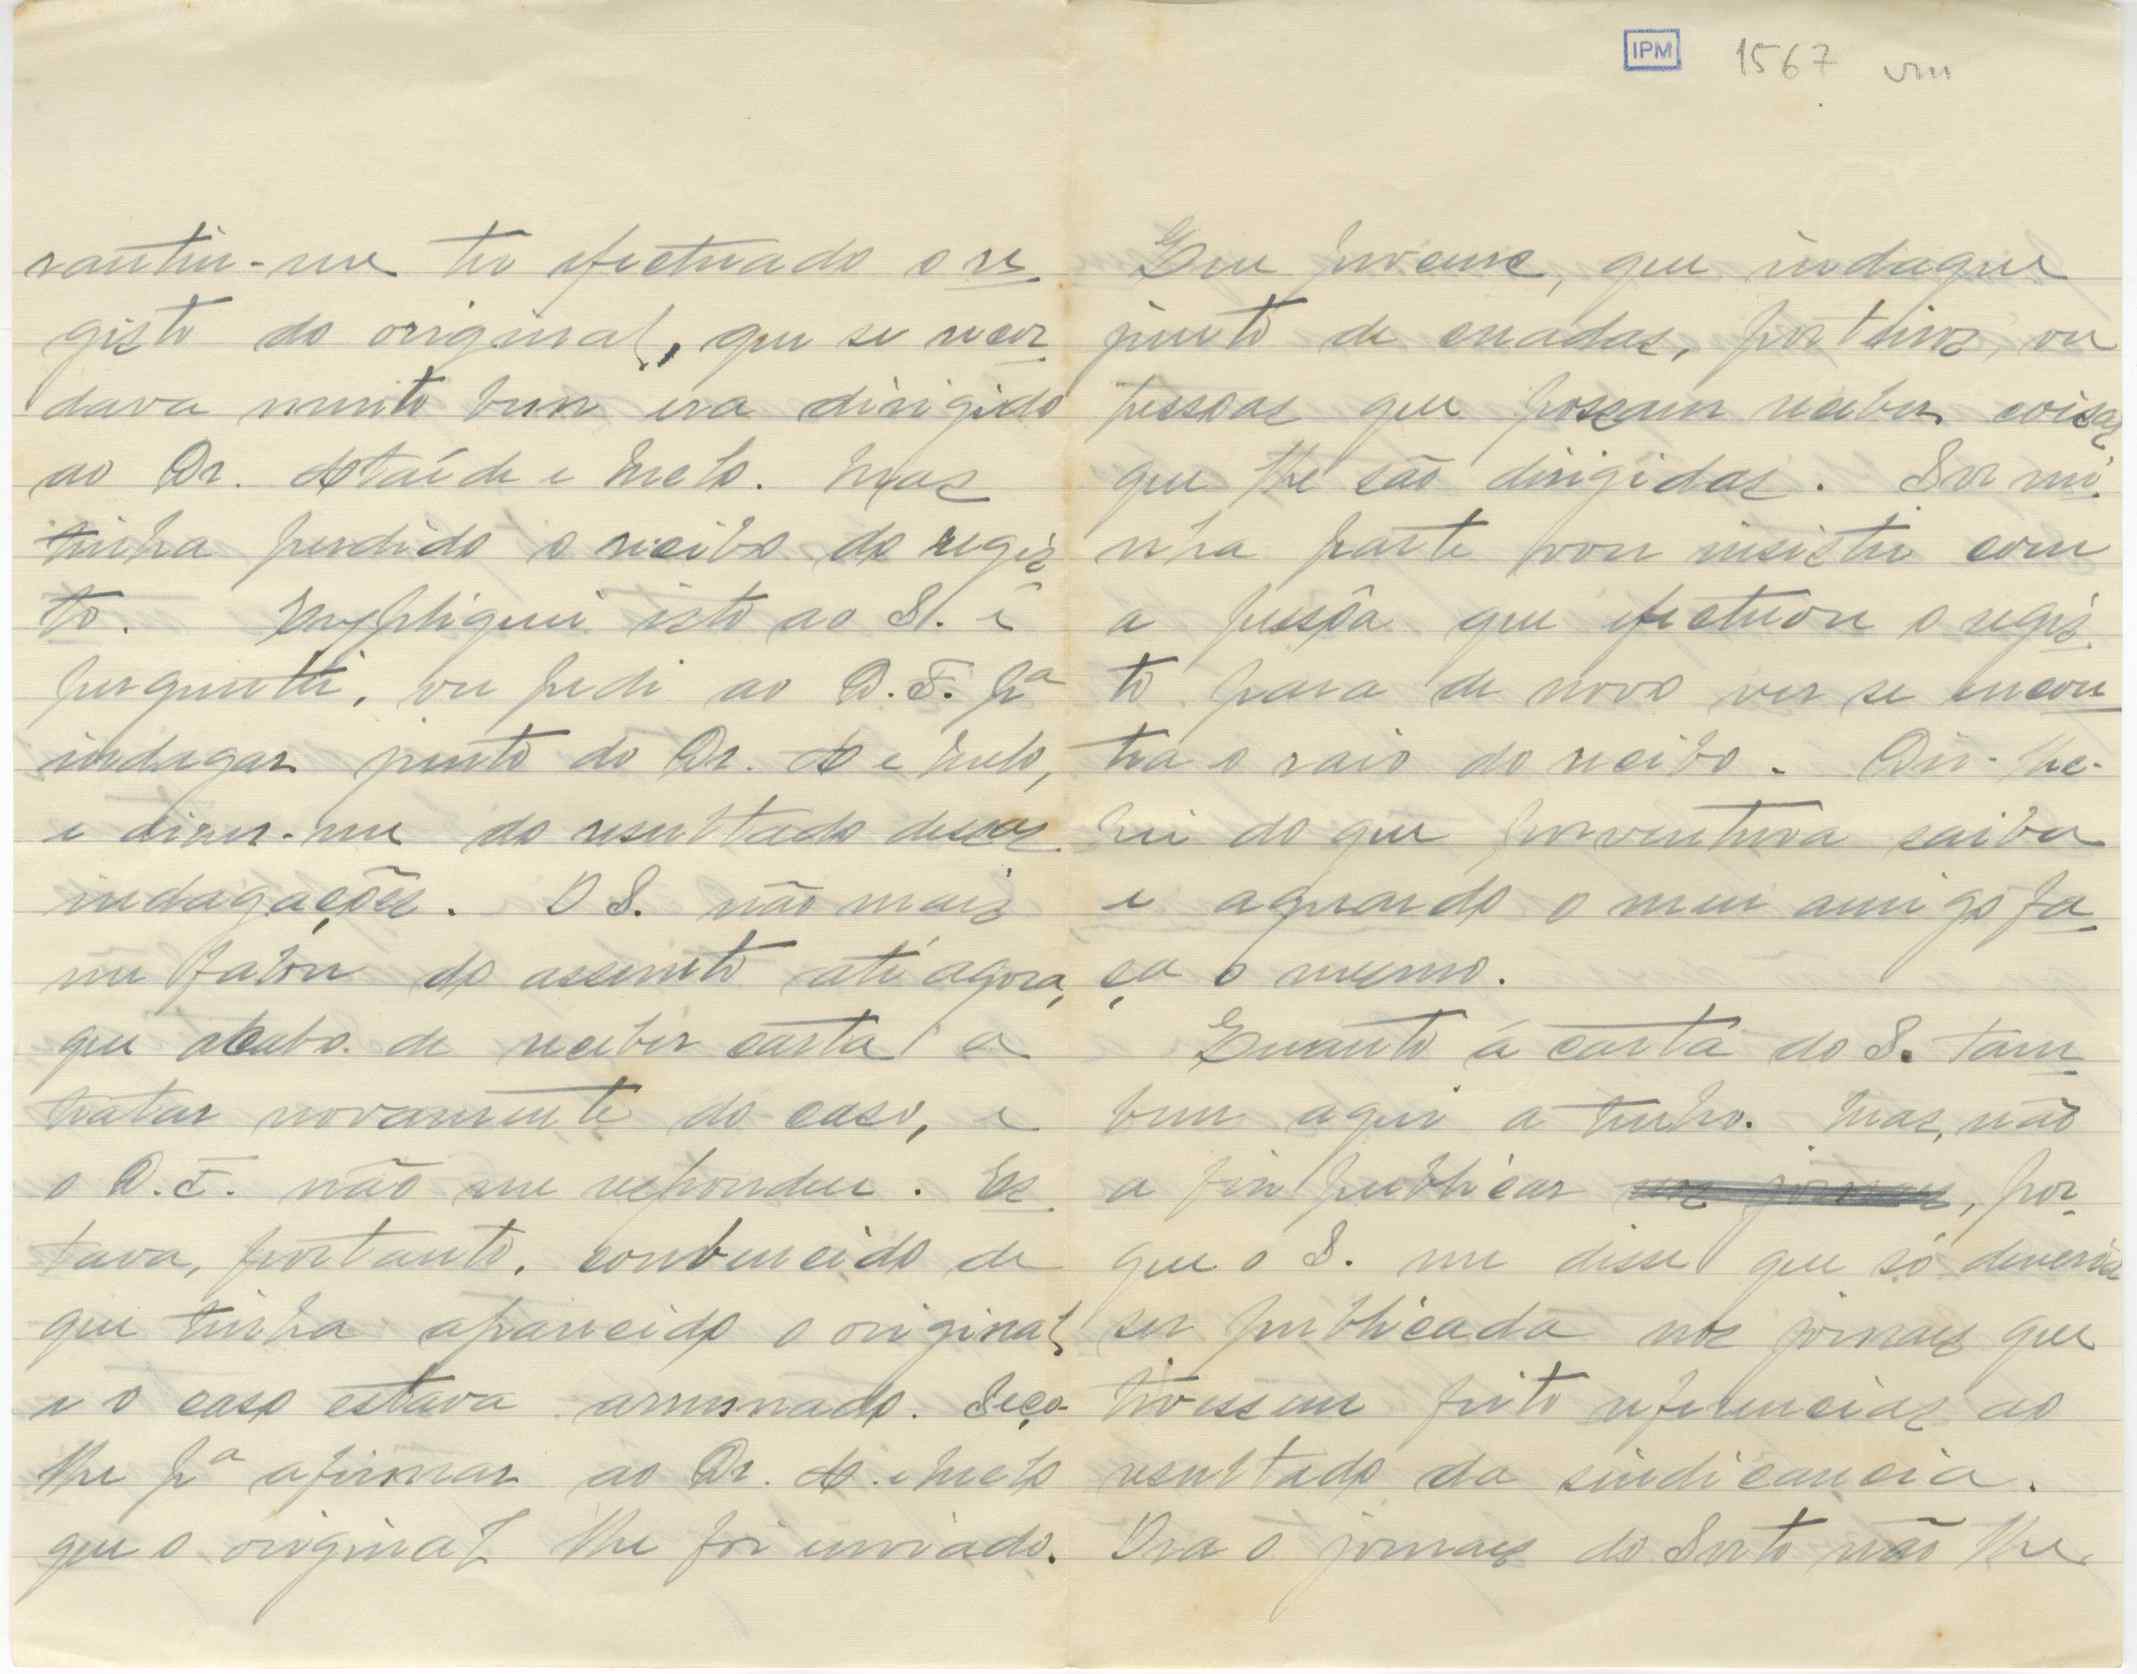 IPM 1567 VIII
rantiu-me ter efectuado o re
gisto do original, que se recor
dava muito bem era dirigido
ao Dr. Ataíde e Melo. Mas
tinha perdido o recibo do regis
to. Expliquei isto ao S. e
perguntei, ou pedi ao D.F. pª
indagar junto do Dr. A e Melo,
e dizer-me do resultado dessas
indagações. O S. não mais
me falou do assunto até agora,
que acabo de receber carta a
tratar novamente do caso, e
o D.F. não me respondeu. Es
tava, portanto, convencido de
que tinha aparecido o original
e o caso estava arrumado. Peço-
lhe pª afirmar ao Dr. A. e Melo
que o original lhe foi enviado.
Que procure, que indague
junto de criadas, porteiros, ou
pessoas que possam receber coisas
que lhe são dirigidas. Por mi
nha parte vou insistir com
a pessôa que efectuou o regis
to para de novo ver se encon
tra o raio do recibo. Dir-lhe-
hei do que porventura saiba
e aguardo o meu amigo fa
ça o mesmo.
Quanto á carta do S. tam
bem aqui a tenho. Mas, não
a fiz publicar nos jornaes, por
que o S. me disse que só deveria
ser publicada nos jornaes que
tivessem feito referencias ao
resultado da sindicancia.
Ora o jornaes do Porto não lhe